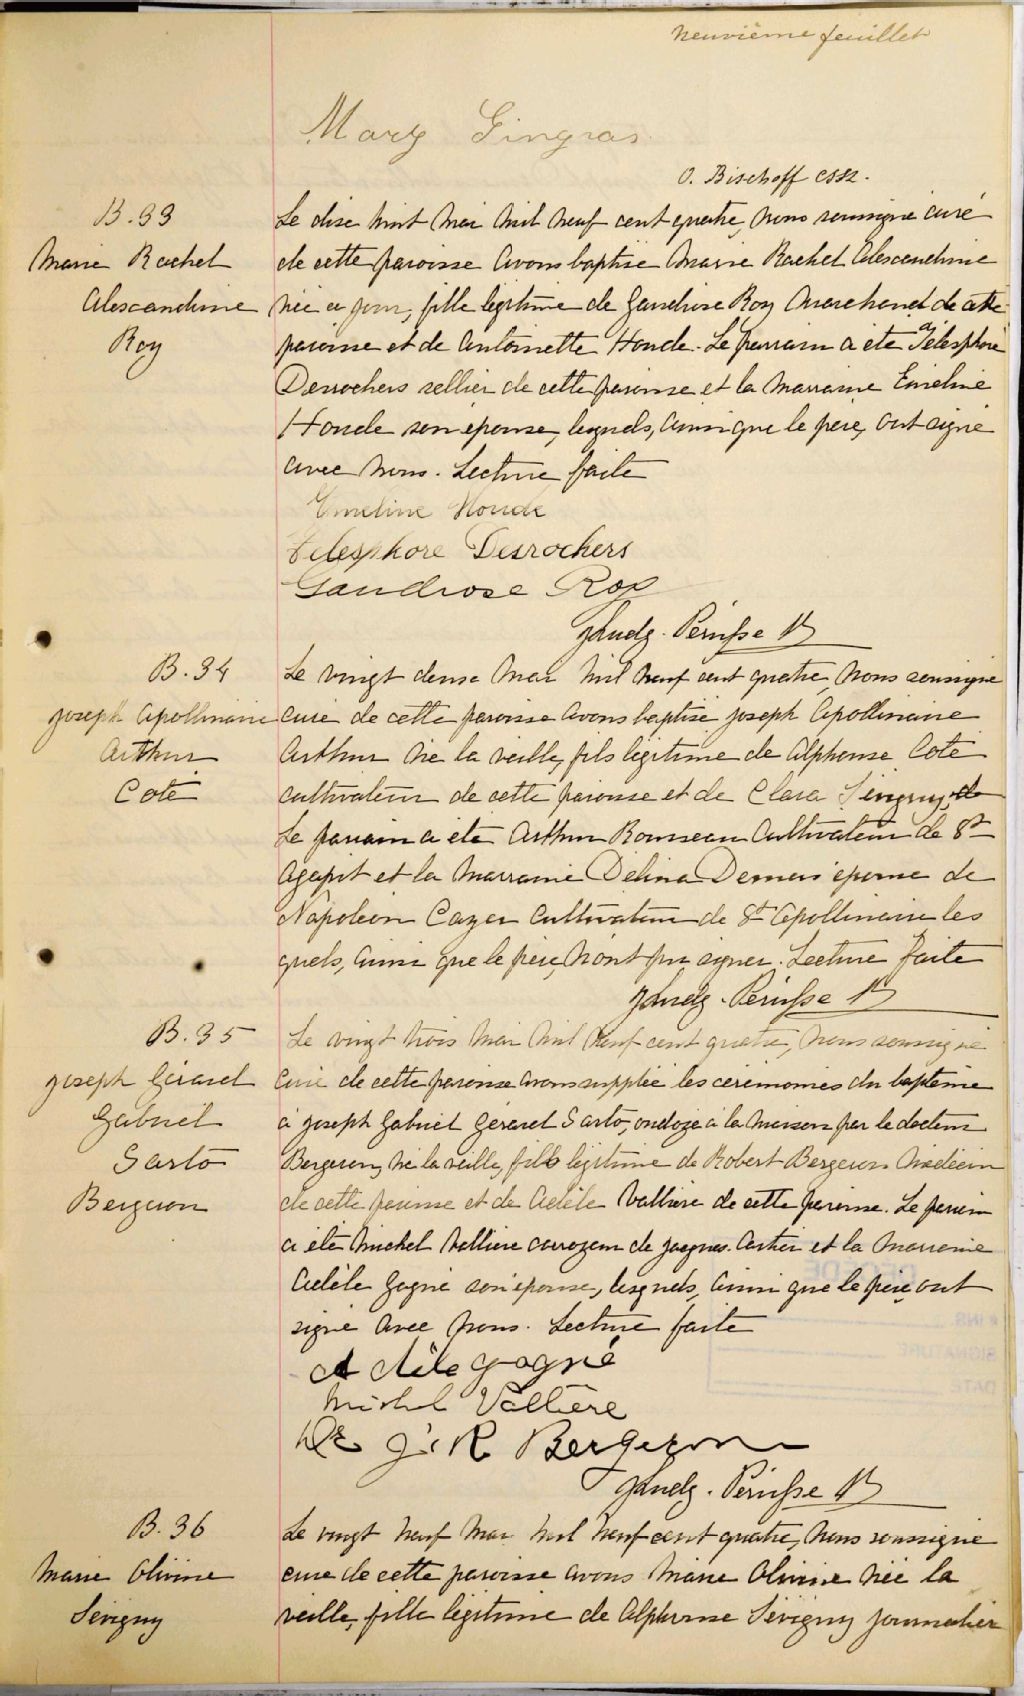 neuvième feuillet
Mary Gingras
O. Bischoff cssr.
B. 33
Marie Rachel
Alexcandrine
Roy
Le dixe huit mai mil neuf cent quatre, nous soussigné curé
de cette paroisse avons baptisé Marie Rachel Alexcandrine
née ce jour, fille légitime de Gaudiose Roy marchand de cette
paroisse et de Antoinette Houde. Le parrain a été Télesphore
Desrochers sellier de cette paroisse et la marraine Emeline
Houde son épouse, lesquels, ainsi que le père, ont signé
avec nous. Lecture faite
Emeline Houde
Telesphore Desrochers
Gaudiose Roy
Pérusse Ptr
B. 34
Joseph Apollinaire
Arthur
Coté
Le vingt deuxe mai mil neuf cent quatre, nous soussigné
curé de cette paroisse avons baptisé Joseph Apollinaire
Arthur né la veille, fils légitime de Alphonse Coté
cultivateur de cette paroisse et de Clara Sévigny, de
Le parrain a été Arthur Rousseau cultivateur de St
Agapit et la marraine Délina Demers épouse de
Napoléon Cayer cultivateur de St Apollinaire les
quels, ainsi que le père, n'ont pu signer. Lecture faite
Pérusse Ptr
B. 35
Joseph Gérard
Gabriel
Sarto
Bergeron
Le vingt trois mai mil neuf cent quatre, nous soussigné
curé de cette paroisse avons supplée les cérémonies du baptême
à Joseph Gabriel Gérard Sarto, ondoyé à la maison par le docteur
Bergeron, né la veille, fils légitime de Robert Bergeron médecin
de cette paroisse et de Adèle Vallière de cette paroisse. Le parrain
a été Michel Vallière de Jacques-Cartier et la marraine
Adèle Gagné son épouse, lesquels, ainsi que le père, ont
signé avec nous. Lecture faite
Adèle Gagné
Michel Vallière
Dr J. R Bergeron
Pérusse Ptr
B. 36
Marie Olivine
Sévigny
Le vingt neuf mai mil neuf cent quatre, nous soussigné
curé de cette paroisse avons Marie Olivine née la
veille, fille légitime de Alphonse Sévigny journalier
DÉCÉDÉ
# INS.
SIGNATURE
DATE